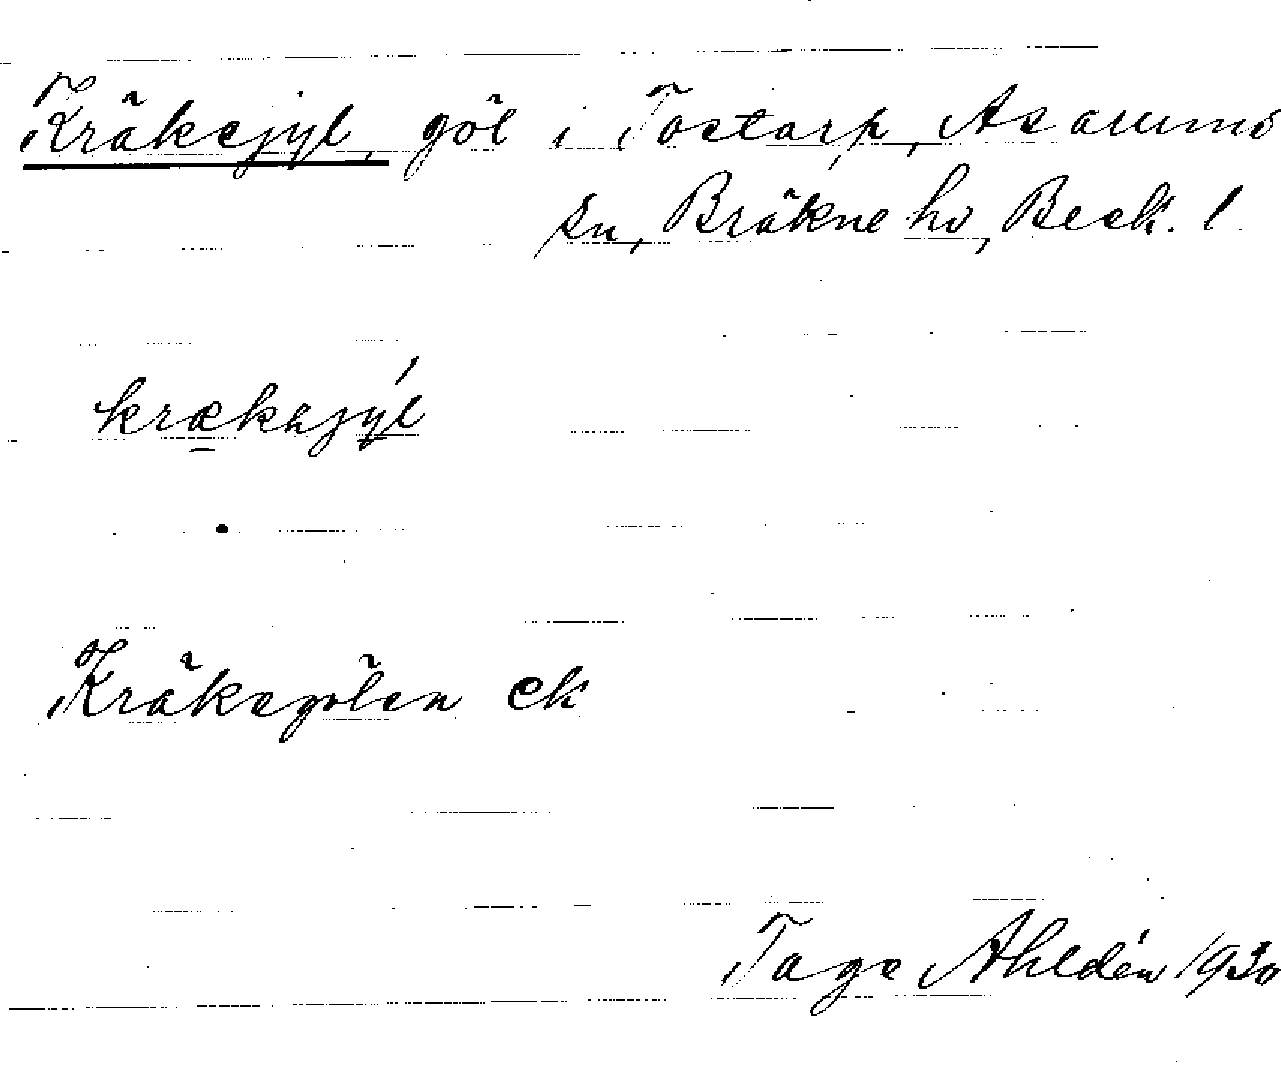 Kräksjyl, göl i Tostarp, Asarums
sn, Bräkne hd, Blek. l
kræksjýl
Kräksgölen ek
Tage Ahldén 1930